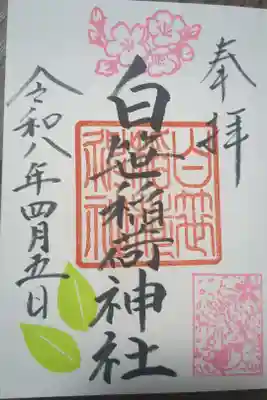 奉拝
白笹稲荷神社
令和八年四月五日
白笹稲荷神社